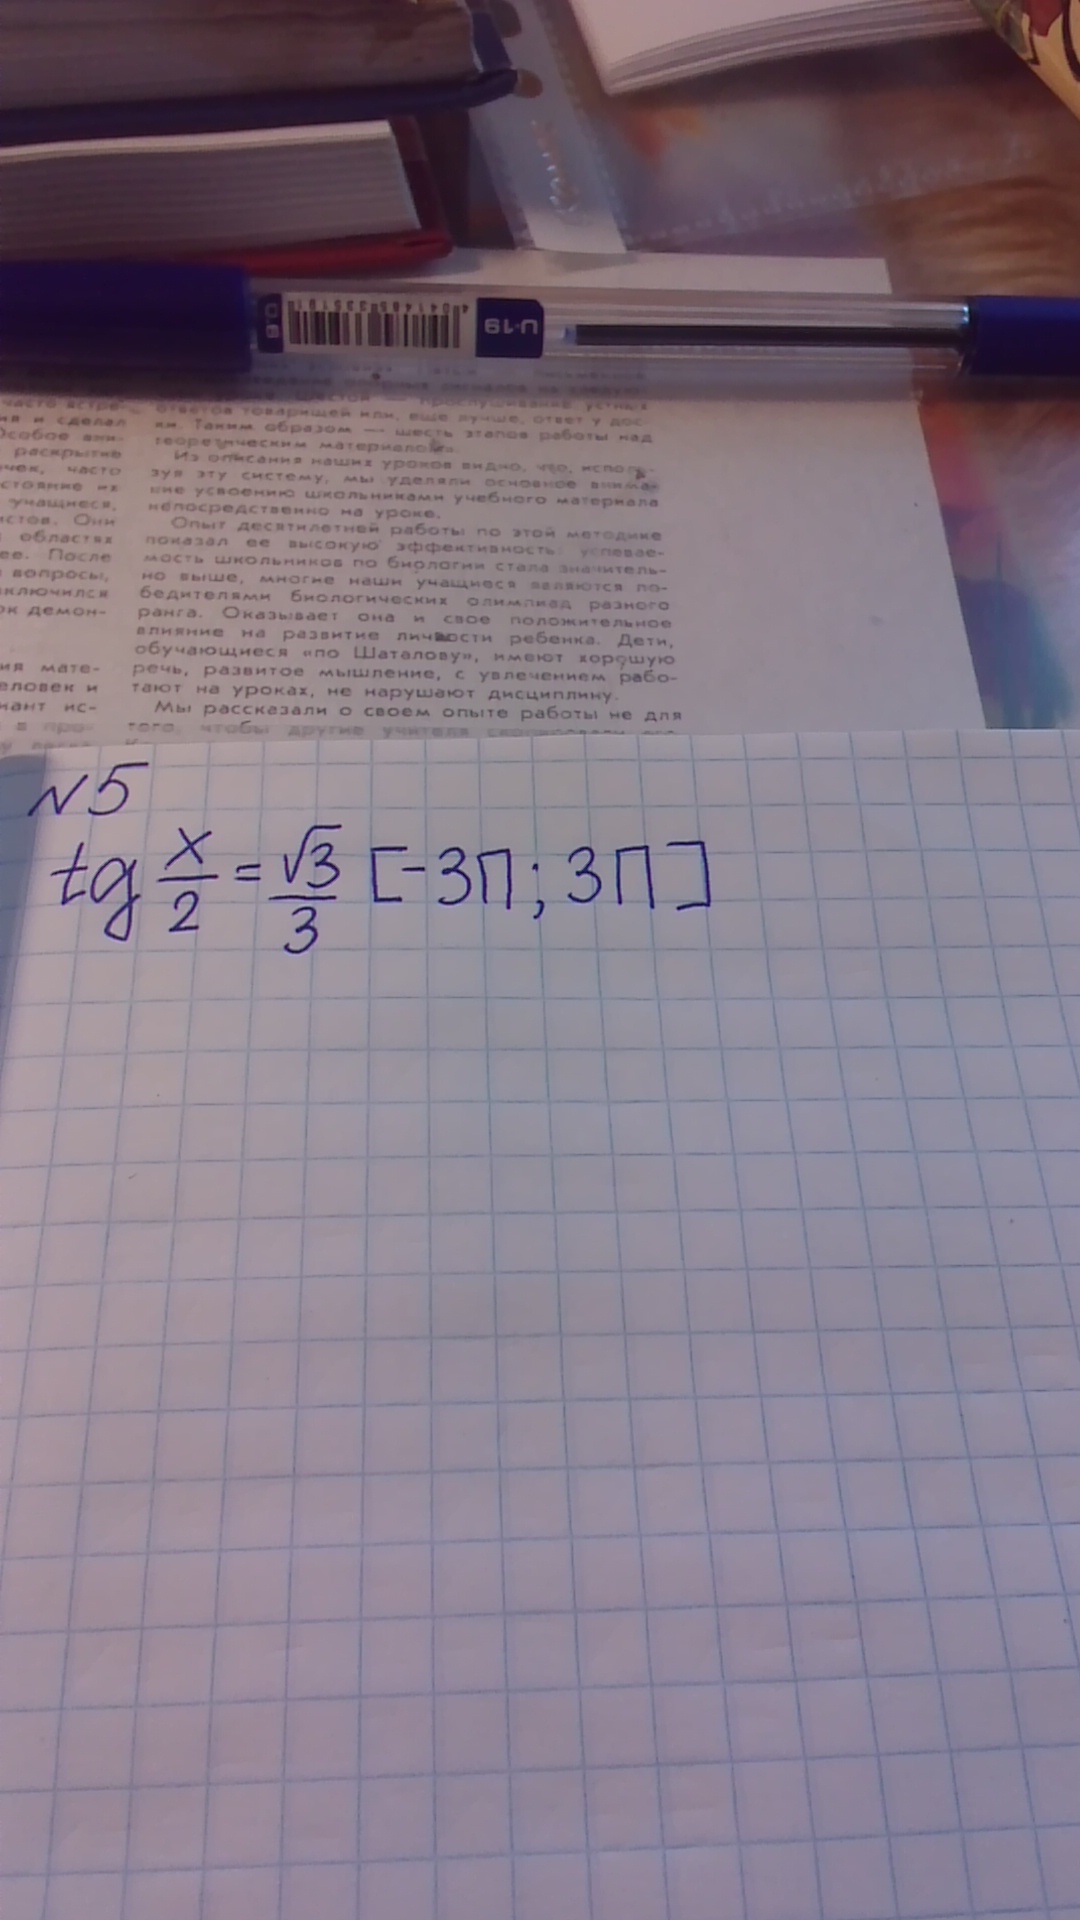 U-19
0.8
часто встре-
ответов товарищей или, еще лучше, ответ у дос-
ия и сделал
ки. Таким образом — шесть этапов работы над
Особое вни-
теоретическим материалом.
раскрытие
Из описания наших уроков видно, что, исполь-
чек, часто
зуя эту систему, мы уделяли основное внима-
стояние их
ние усвоению школьниками учебного материала
учащиеся,
непосредственно на уроке.
истов. Они
Опыт десятилетней работы по этой методике
областях
показал ее высокую эффективность: успевае-
ее. После
мость школьников по биологии стала значитель-
вопросы,
но выше, многие наши учащиеся являются по-
включился
бедителями биологических олимпиад разного
ок демон-
ранга. Оказывает она и свое положительное
влияние на развитие личности ребенка. Дети,
обучающиеся «по Шаталову», имеют хорошую
ия мате-
речь, развитое мышление, с увлечением рабо-
еловек и
тают на уроках, не нарушают дисциплину.
иант ис-
Мы рассказали о своем опыте работы не для
в про-
того, чтобы другие учителя
N5
tg x/2 = √3/3 [-3П; 3П]